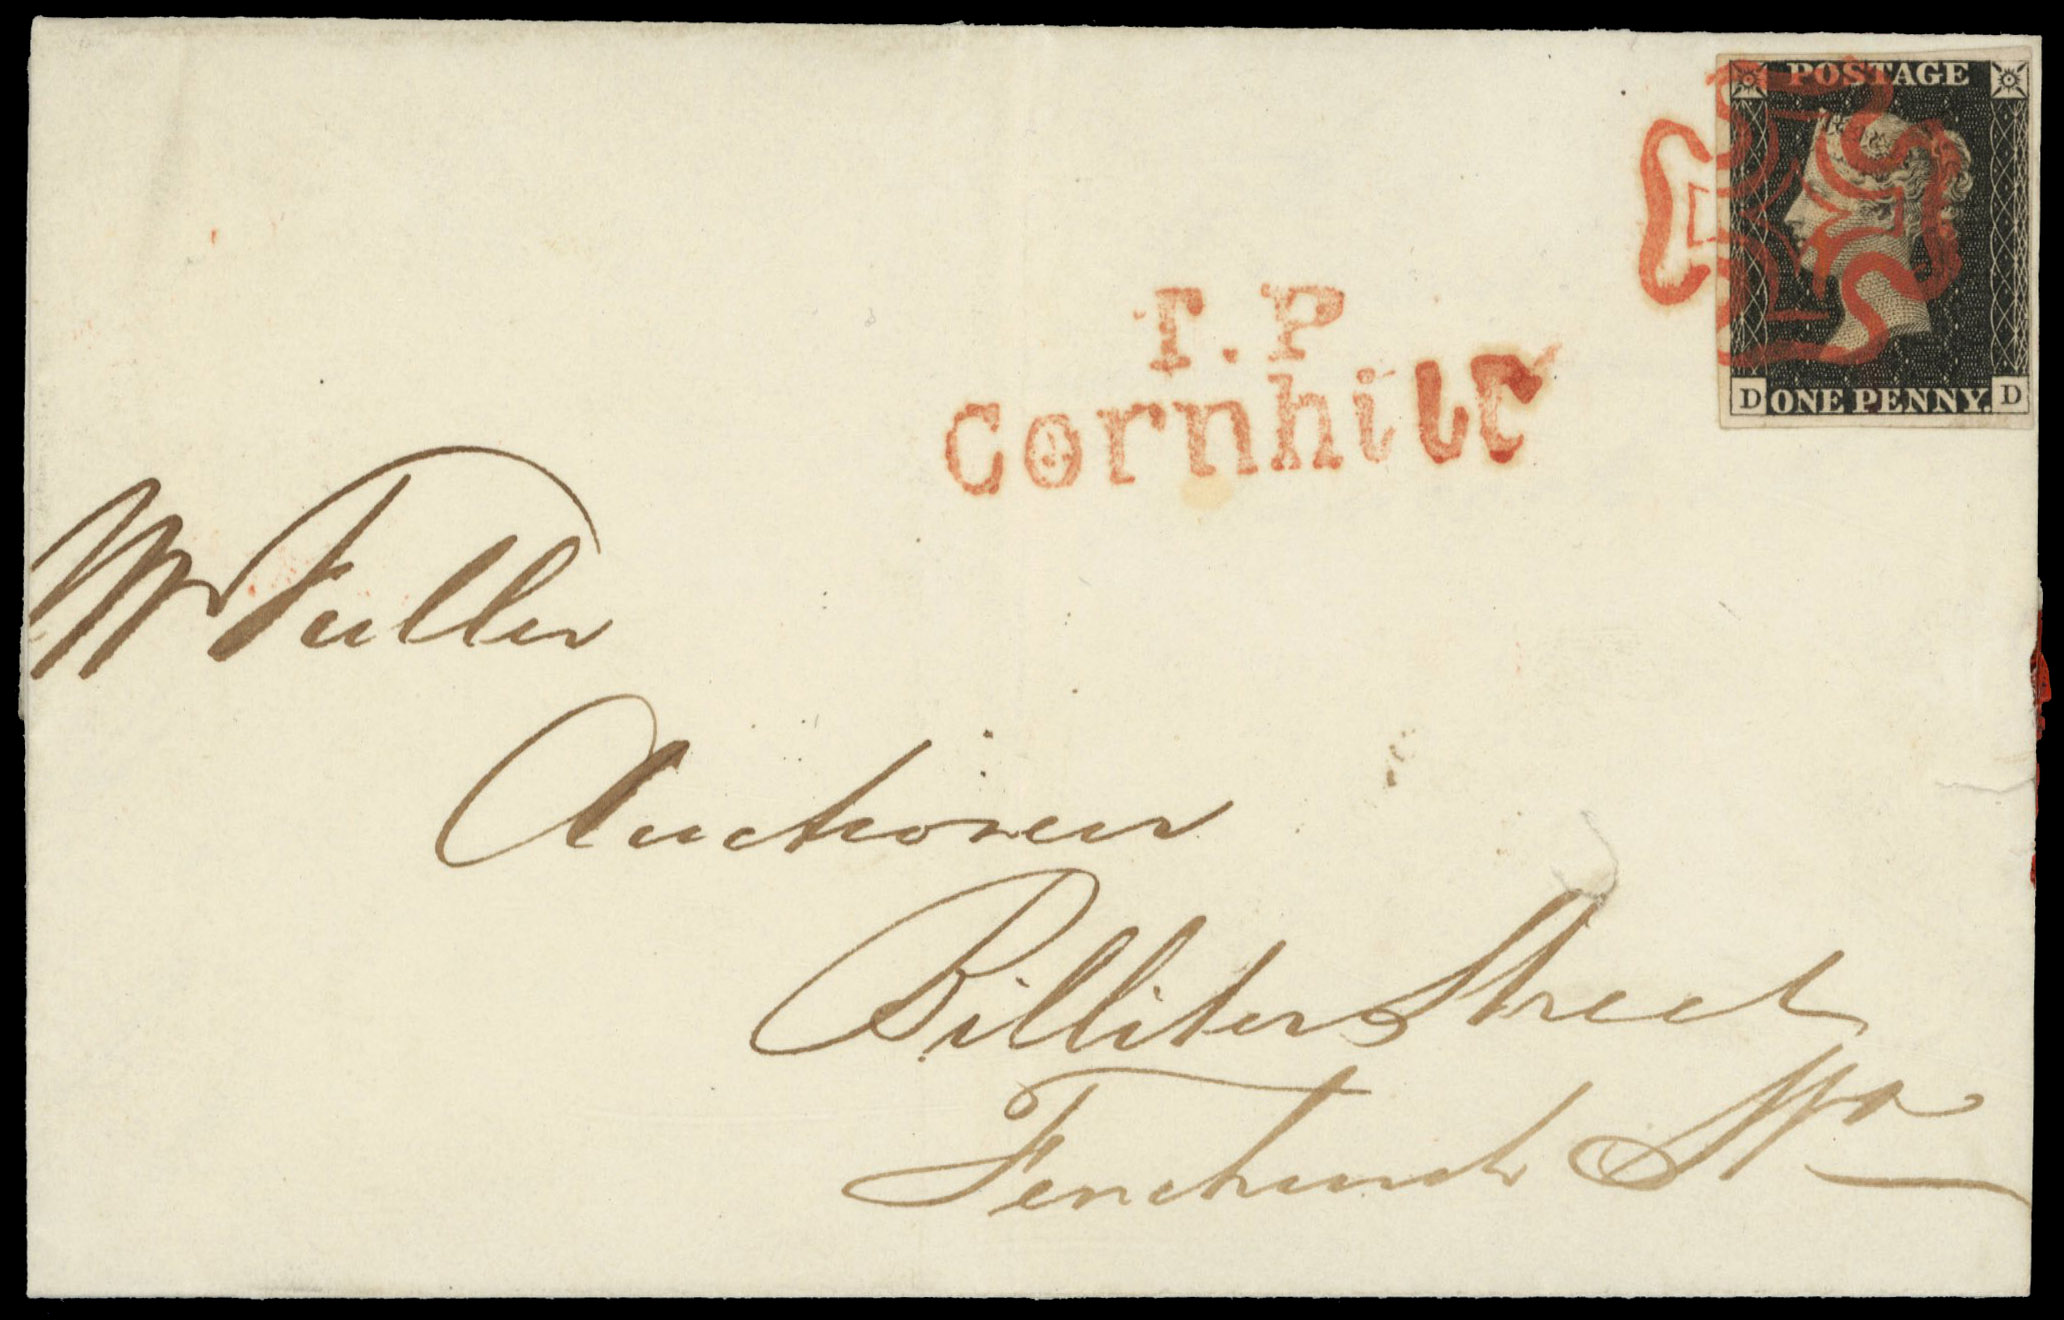 POSTAGE
D ONE PENNY. D
T.P
Cornhill
Mr Fuller
Auctioneer
Billiter Street
Fenchurch St